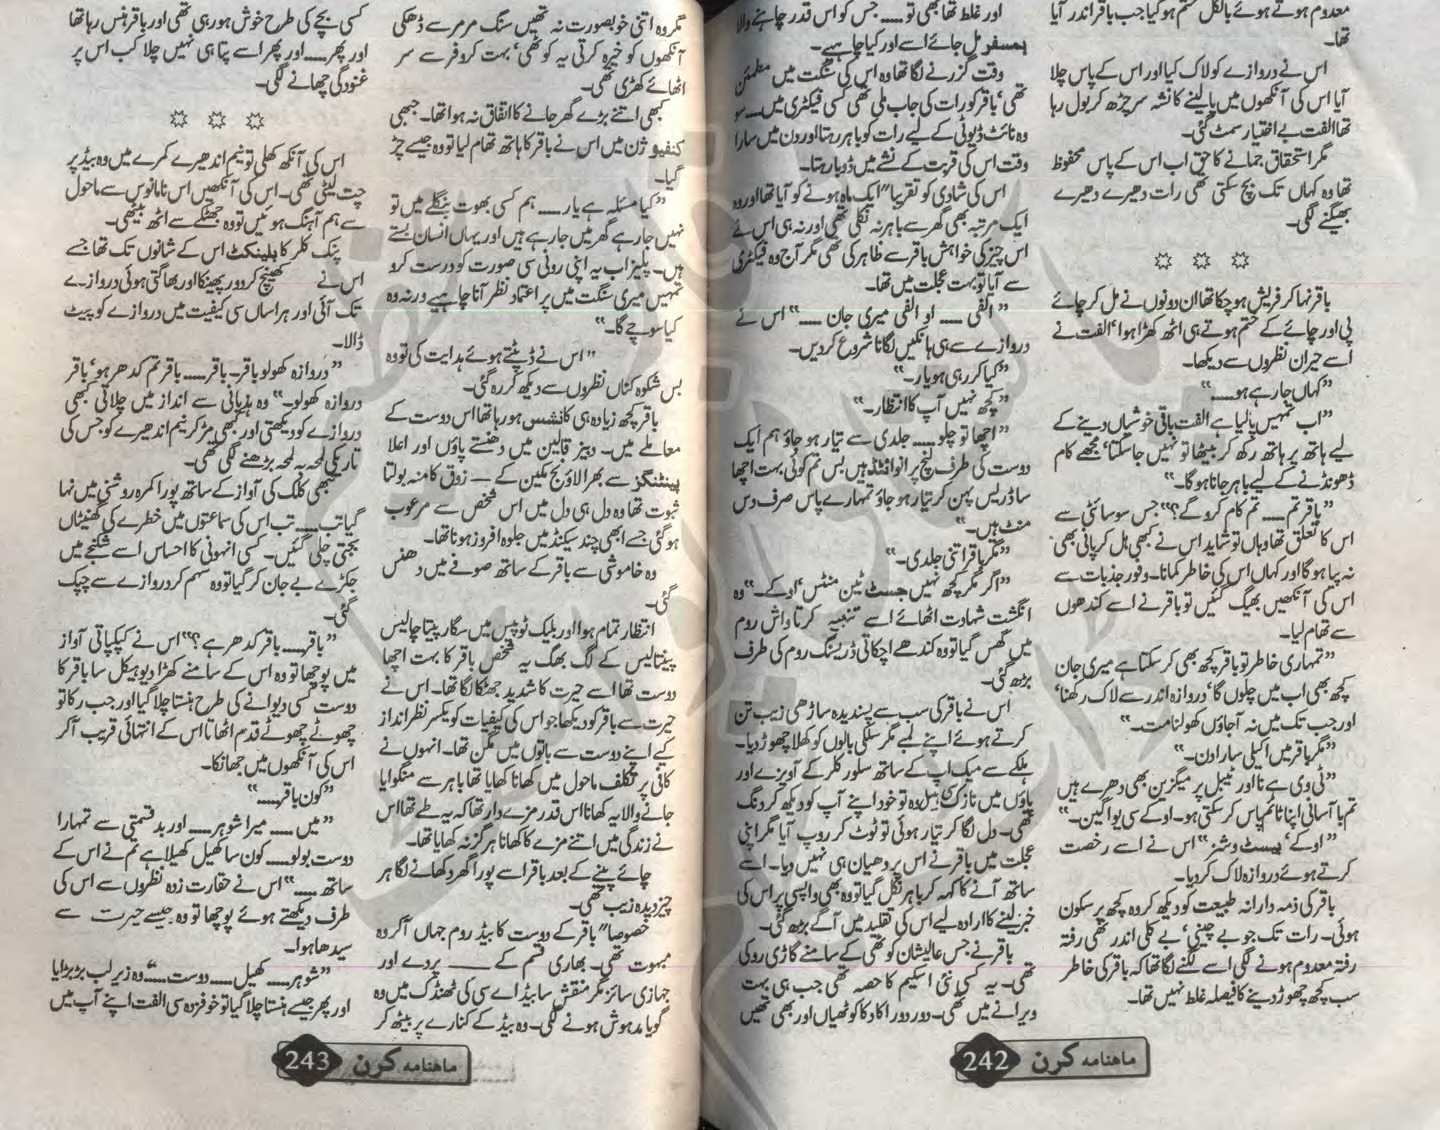 معدوم ہوتے ہوئے بالکل ختم ہو گیا جب باقر اندر آیا
تھا۔
اس نے دروازے کو لاک کیا اور اس کے پاس چلا
آیا اس کی آنکھوں میں پا لینے کا نشہ سر چڑھ کر بول رہا
تھا الفت بے اختیار سمٹ گئی۔
مگر استحقاق جمانے کا حق اب اس کے پاس محفوظ
تھا وہ کہاں تک بچ سکتی تھی رات دھیرے دھیرے
بھیگنے لگی۔
باقر نہا کر فریش ہو چکا تھا ان دونوں نے مل کر چائے
پی اور چائے کے ختم ہوتے ہی اٹھ کھڑا ہوا، الفت نے
اسے حیران نظروں سے دیکھا۔
”کہاں جا رہے ہو۔۔۔۔“
”اب تمہیں پا لیا ہے الفت باقی خوشیاں دینے کے
لیے ہاتھ پر ہاتھ رکھ کر بیٹھا تو نہیں جا سکتا، مجھے کام
ڈھونڈنے کے لیے باہر جانا ہو گا۔“
”باقر تم۔۔۔۔ تم کام کرو گے؟“ جس سوسائٹی سے
اس کا تعلق تھا وہاں تو شاید اس نے کبھی ہل کر پانی بھی
نہ پیا ہو گا اور کہاں اس کی خاطر کمانا۔ وفور جذبات سے
اس کی آنکھیں بھیگ گئیں تو باقر نے اسے کندھوں
سے تھام لیا۔
”تمہاری خاطر تو باقر کچھ بھی کر سکتا ہے میری جان
کچھ بھی اب میں چلوں گا، دروازہ اندر سے لاک رکھنا،
اور جب تک میں نہ آجاؤں کھولنا مت۔“
”مگر باقر میں اکیلی سارا دن۔“
”ٹی وی ہے نا اور ٹیبل پر میگزین بھی دھرے ہیں
تم با آسانی اپنا ٹائم پاس کر سکتی ہو۔ اوکے سی یو اگین۔“
”اوکے، بیسٹ وشز“ اس نے اسے رخصت
کرتے ہوئے دروازہ لاک کر دیا۔
باقر کی ذمہ دارانہ طبیعت کو دیکھ کر وہ کچھ پر سکون
ہوئی۔ رات تک جو بے چینی، بے کلی اندر تھی رفتہ
رفتہ معدوم ہونے لگی اسے لگنے لگا تھا کہ باقر کی خاطر
سب کچھ چھوڑ دینے کا فیصلہ غلط نہیں تھا۔
اور غلط تھا بھی تو۔۔۔۔ جس کو اس قدر چاہنے والا
ہمسفر مل جائے اسے اور کیا چاہیے۔
وقت گزرنے لگا تھا وہ اس کی سنگت میں مطمئن
تھی، باقر کو رات کی جاب ملی تھی کسی فیکٹری میں۔۔۔ سو
وہ نائٹ ڈیوٹی کے لیے رات کو باہر رہتا اور دن میں سارا
وقت اس کی قربت کے نشے میں ڈوبا رہتا۔
اس کی شادی کو تقریبا" ایک ماہ ہونے کو آیا تھا اور وہ
ایک مرتبہ بھی گھر سے باہر نہ نکلی تھی اور نہ ہی اس نے
اس چیز کی خواہش باقر سے ظاہر کی تھی مگر آج وہ فیکٹری
سے آیا تو بہت عجلت میں تھا۔
”الفی۔۔۔۔ او الفی میری جان۔۔۔۔“ اس نے
دروازے سے ہی ہانکیں لگانا شروع کر دیں۔
”کیا کر رہی ہو یار۔“
”کچھ نہیں آپ کا انتظار۔“
”اچھا تو چلو۔۔۔۔ جلدی سے تیار ہو جاؤ ہم ایک
دوست کی طرف لنچ پر انوائٹڈ ہیں بس تم کوئی بہت اچھا
سا ڈریس پہن کر تیار ہو جاؤ تمہارے پاس صرف دس
منٹ ہیں۔“
”مگر باقر اتنی جلدی۔“
”اگر مگر کچھ نہیں جسٹ ٹین منٹس، اوکے۔“ وہ
انگشت شہادت اٹھائے اسے تنبیہہ کرتا واش روم
میں گھس گیا تو وہ کندھے اچکاتی ڈریسنگ روم کی طرف
بڑھ گئی۔
اس نے باقر کی سب سے پسندیدہ ساڑھی زیب تن
کرتے ہوئے اپنے لمبے مگر سلکی بالوں کو کھلا چھوڑ دیا۔
ہلکے سے میک اپ کے ساتھ سلور کلر کے آویزے اور
پاؤں میں نازک ہیل وہ تو خود اپنے آپ کو دیکھ کر دنگ
تھی۔ دل لگا کر تیار ہوئی تو ٹوٹ کر روپ آیا مگر اپنی
عجلت میں باقر نے اس پر دھیان ہی نہیں دیا۔ اسے
ساتھ آنے کا کہہ کر باہر نکل گیا تو وہ بھی واپسی پر اس کی
خبر لینے کا ارادہ لیے اس کی تقلید میں آگے بڑھ گئی۔
باقر نے جس عالیشان کوٹھی کے سامنے گاڑی روکی
تھی۔ یہ کسی نئی اسکیم کا حصہ تھی جب ہی بہت
ویرانے میں تھی۔ دور دور اکا دکا کوٹھیاں اور بھی تھیں
ماہنامہ کرن 242
مگر وہ اتنی خوبصورت نہ تھیں سنگ مرمر سے ڈھکی
آنکھوں کو خیرہ کرتی یہ کوٹھی، بہت کروفر سے سر
اٹھائے کھڑی تھی۔
کبھی اتنے بڑے گھر جانے کا اتفاق نہ ہوا تھا۔ جبھی
کنفیوژن میں اس نے باقر کا ہاتھ تھام لیا تو وہ جیسے چڑ
گیا۔
”کیا مسئلہ ہے یار۔۔۔۔ ہم کسی بھوت بنگلے میں تو
نہیں جا رہے گھر میں جا رہے ہیں اور یہاں انسان بستے
ہیں۔ پلیز اب یہ اپنی رونی سی صورت کو درست کرو
تمہیں میری سنگت میں پر اعتماد نظر آنا چاہیے ورنہ وہ
کیا سوچے گا۔“
"اس نے ڈپٹتے ہوئے ہدایت کی تو وہ
بس شکوہ کناں نظروں سے دیکھ کر رہ گئی۔
باقر کچھ زیادہ ہی کانشس ہو رہا تھا اس دوست کے
معاملے میں۔ دبیز قالین میں دھنستے پاؤں اور اعلا
پینٹنگز سے بھرا لاؤنج مکین کے — ذوق کا منہ بولتا
ثبوت تھا وہ دل ہی دل میں اس شخص سے مرعوب
ہو گئی جسے ابھی چند سیکنڈ میں جلوہ افروز ہونا تھا۔
وہ خاموشی سے باقر کے ساتھ صوفے میں دھنس
گئی۔
انتظار تمام ہوا اور بلیک ٹوپیس میں سگار پیتا چالیس
پینتالیس کے لگ بھگ یہ شخص باقر کا بہت اچھا
دوست تھا اسے حیرت کا شدید جھٹکا لگا تھا۔ اس نے
حیرت سے باقر کو دیکھا جو اس کی کیفیات کو یکسر نظر انداز
کیے اپنے دوست سے باتوں میں مگن تھا۔ انہوں نے
کافی پر تکلف ماحول میں کھانا کھایا تھا باہر سے منگوایا
جانے والا یہ کھانا اس قدر مزے دار تھا کہ یہ طے تھا اس
نے زندگی میں اتنے مزے کا کھانا ہرگز نہ کھایا تھا۔
چائے پینے کے بعد باقر اسے پورا گھر دکھانے لگا ہر
چیز دیدہ زیب تھی۔
خصوصا" باقر کے دوست کا بیڈ روم جہاں آکر وہ
مبہوت تھی۔ بھاری قسم کے — پردے اور
جہازی سائز مگر منقش سا بیڈ اے سی کی ٹھنڈک میں وہ
گویا مدہوش ہونے لگی۔ وہ بیڈ کے کنارے پر بیٹھ کر
کسی بچے کی طرح خوش ہو رہی تھی اور باقر ہنس رہا تھا
اور پھر۔۔۔۔ اور پھر اسے پتا ہی نہیں چلا کب اس پر
غنودگی چھانے لگی۔
اس کی آنکھ کھلی تو نیم اندھیرے کمرے میں وہ بیڈ پر
چت لیٹی تھی۔ اس کی آنکھیں اس نامانوس سے ماحول
سے ہم آہنگ ہوئیں تو وہ جھٹکے سے اٹھ بیٹھی۔
پنک کلر کا بلینکٹ اس کے شانوں تک تھا جسے
اس نے کھینچ کر دور پھینکا اور بھاگتی ہوئی دروازے
تک آئی اور ہراساں سی کیفیت میں دروازے کو پیٹ
ڈالا۔
”دروازہ کھولو باقر۔ باقر۔۔۔۔ باقر تم کدھر ہو، باقر
دروازہ کھولو۔“ وہ ہذیانی سے انداز میں چلاتی کبھی
دروازے کو دیکھتی اور کبھی مڑ کر نیم اندھیرے کو جس کی
تاریکی لمحہ بہ لمحہ بڑھنے لگی تھی۔
تبھی کلک کی آواز کے ساتھ پورا کمرہ روشنی میں نہا
گیا تب۔۔۔۔ تب اس کی سماعتوں میں خطرے کی گھنٹیاں
بجتی چلی گئیں۔ کسی انہونی کا احساس اسے شکنجے میں
جکڑے بے جان کر گیا تو وہ سہم کر دروازے سے چپک
گئی۔
”باقر۔۔۔۔ باقر کدھر ہے؟“ اس نے کپکپاتی آواز
میں پوچھا تو وہ اس کے سامنے کھڑا دیو ہیکل سا باقر کا
دوست کسی دیوانے کی طرح ہنستا چلا گیا اور جب رکا تو
چھوٹے چھوٹے قدم اٹھاتا اس کے انتہائی قریب آکر
اس کی آنکھوں میں جھانکا۔
”کون باقر۔۔۔۔“
”میں۔۔۔۔ میرا شوہر۔۔۔۔ اور بد قسمتی سے تمہارا
دوست بولو۔۔۔۔ کون سا کھیل کھیلا ہے تم نے اس کے
ساتھ۔۔۔۔“ اس نے حقارت زدہ نظروں سے اس کی
طرف دیکھتے ہوئے پوچھا تو وہ جیسے حیرت سے
سیدھا ہوا۔
”شوہر۔۔۔۔ کھیل۔۔۔۔ دوست۔۔۔۔“ وہ زیر لب بڑبڑایا
اور پھر جیسے ہنستا چلا گیا تو خوفزدہ سی الفت اپنے آپ میں
ماہنامہ کرن 243